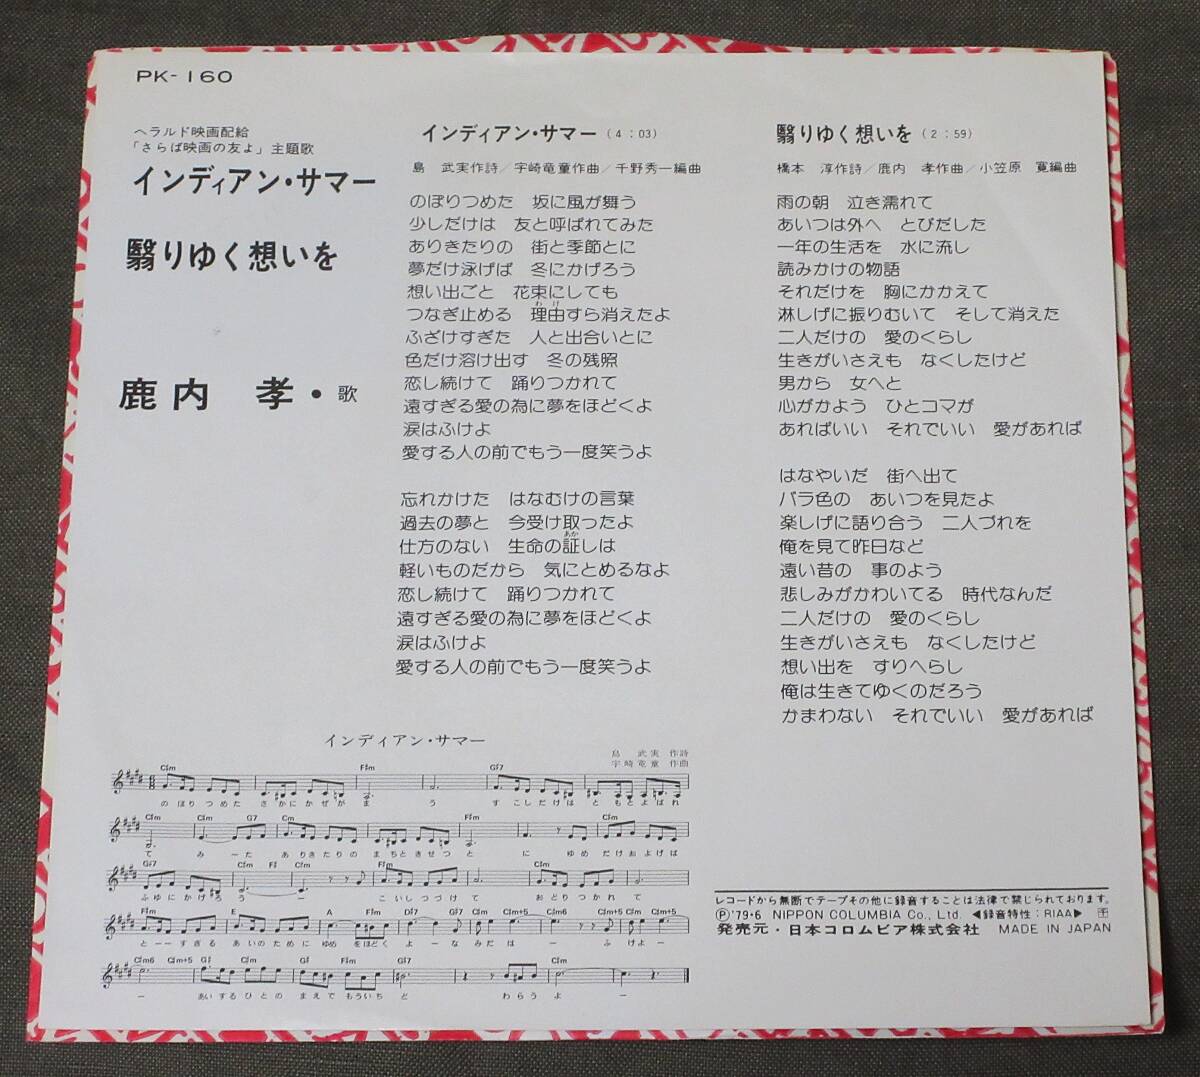 PK-160
ヘラルド映画配給
「さらば映画の友よ」主題歌
インディアン・サマー
翳りゆく想いを
鹿内 孝・歌
インディアン・サマー (4:03)
島 武実作詩/宇崎竜童作曲/千野秀一編曲
のぼりつめた 坂に風が舞う
少しだけは 友と呼ばれてみた
ありきたりの 街と季節とに
夢だけ泳げば 冬にかげろう
想い出ごと 花束にしても
つなぎ止める 理由すら消えたよ
わけ
ふざけすぎた 人と出合いとに
色だけ溶け出す 冬の残照
恋し続けて 踊りつかれて
遠すぎる愛の為に夢をほどくよ
涙はふけよ
愛する人の前でもう一度笑うよ
忘れかけた はなむけの言葉
過去の夢と 今受け取ったよ
仕方のない 生命の証しは
あか
軽いものだから 気にとめるなよ
恋し続けて 踊りつかれて
遠すぎる愛の為に夢をほどくよ
涙はふけよ
愛する人の前でもう一度笑うよ
翳りゆく想いを (2:59)
橋本 淳作詩/鹿内 孝作曲/小笠原 寛編曲
雨の朝 泣き濡れて
あいつは外へ とびだした
一年の生活を 水に流し
読みかけの物語
それだけを 胸にかかえて
淋しげに振りむいて そして消えた
二人だけの 愛のくらし
生きがいさえも なくしたけど
男から 女へと
心がかよう ひとコマが
あればいい それでいい 愛があれば
はなやいだ 街へ出て
バラ色の あいつを見たよ
楽しげに語り合う 二人づれを
俺を見て昨日など
遠い昔の 事のよう
悲しみがかわいてる 時代なんだ
二人だけの 愛のくらし
生きがいさえも なくしたけど
想い出を すりへらし
俺は生きてゆくのだろう
かまわない それでいい 愛があれば
インディアン・サマー
島 武実 作詩
宇崎竜童 作曲
C♯m F♯m G♯7
のぼりつめた さかにかぜが ま う すこしだけは ともとよばれ
て み ー た ありきたりの まちときせつ と に ゆめだけおよげば
ふゆにかげろ う ー こいしつづけ て おどりつかれ て
F♯m E A F♯m D♯7 G♯7
と ー ー すぎる あいのために ゆめ をほどく よ ー なみだは ー ふけよ ー
ー あいするひとの まえでもういち ど わらうよ ー
レコードから無断でテープその他に録音することは法律で禁じられております。
Ⓟ'79・6 NIPPON COLUMBIA Co., Ltd. ◀録音特性:RIAA▶
発売元・日本コロムビア株式会社 MADE IN JAPAN